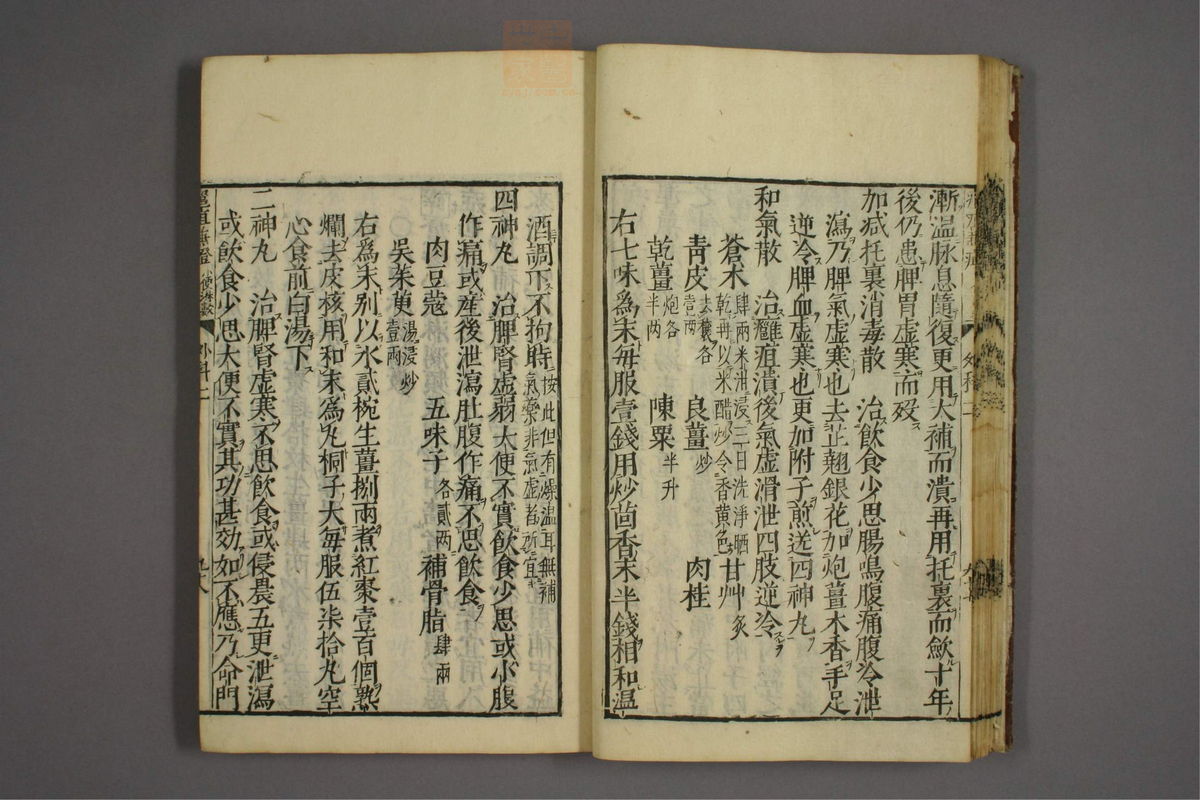 漸温脉息隨復更用大補而潰再用托裏而歛十年
後仍患脾胃虚寒而歿
加减托裏消毒散　治飲食少思腸鳴腹痛腹冷泄
瀉乃脾氣虚寒也去芷翹銀花加炮薑木香手足
逆冷脾血虚寒也更加附子煎送四神丸
和氣散　治癰疽潰後氣虚滑泄四肢逆冷
蒼术肆兩米泔浸三日洗淨晒乾再以米醋炒令香黄色　甘艸炙
靑皮去穰各壹兩　良薑炒　肉桂
乾薑炮各半两　陳粟半升
右七味為末毎服壹錢用炒茴香末半錢相和温
酒調下不拘時按此但有燥温耳無補氣藥非氣虚者所宜
四神丸　治脾腎虚弱大便不實飲食少思或小腹
作痛或産後泄瀉肚腹作痛不思飲食
肉豆蔻　五味子各貳兩　補骨脂肆兩
吳茱萸湯浸炒壹兩
右為末别以水貳椀生薑捌兩煮紅棗壹百個熟
爛去皮核用和末為丸桐子大毎服伍柒拾丸空
心食前白湯下
二神丸　治脾腎虚寒不思飲食或侵晨五更泄瀉
或飲食少思大便不實其功甚効如不應乃命門
外科二